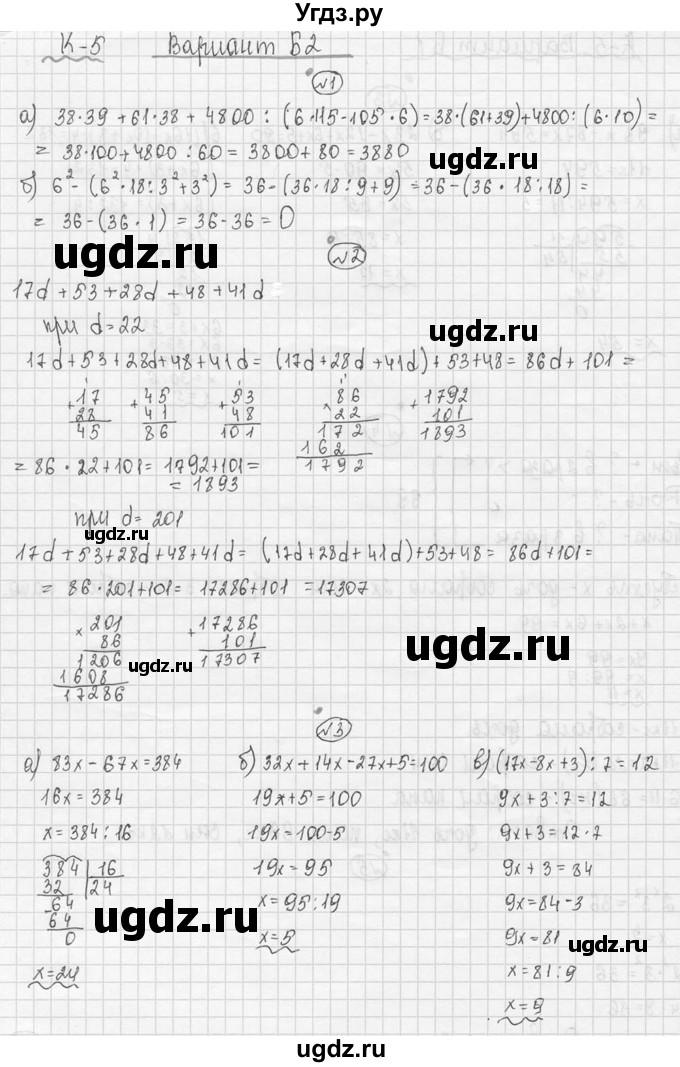 Угдз.ру
К-5 Вариант Б2
№1
а) 38·39 + 61·38 + 4800 : (6·115-105·6) = 38·(61+39)+4800:(6·10) =
= 38·100+4800:60 = 3800+80 = 3880
б) 6² - (6²·18:3²+3²) = 36-(36·18:9+9) = 36-(36·18:18) =
= 36-(36·1) = 36-36 = 0
ugdz.ru
№2
ugdz.ru
17d + 53 + 28d + 48 + 41d
при d=22
ugdz.ru
17d+53+28d+48+41d = (17d+28d+41d)+53+48 = 86d+101 =
+ 17 + 45 + 53 × 86 + 1792
28 41 48 22 101
45 86 101 172 1893
162
1792
ugdz.ru
= 86·22+101 = 1792+101 =
= 1893
при d=201
ugdz.ru
17d+53+28d+48+41d = (17d+28d+41d)+53+48 = 86d+101 =
= 86·201+101 = 17286+101 = 17307
× 201 + 17286
86 101
1206 17307
1608
17286
ugdz.ru
ugdz.ru
№3
а) 83x-67x=384 б) 32x+14x-27x+5=100 в) (17x-8x+3):7=12
16x=384 19x+5=100 9x+3:7=12
x=384:16 19x=100-5 9x+3=12·7
384 16 19x=95 9x+3=84
32 24
64 x=95:19 9x=84-3
64
0 x=5 9x=81
ugdz.ru
ugdz.ru
x=24 x=81:9
x=9
ugdz.ru